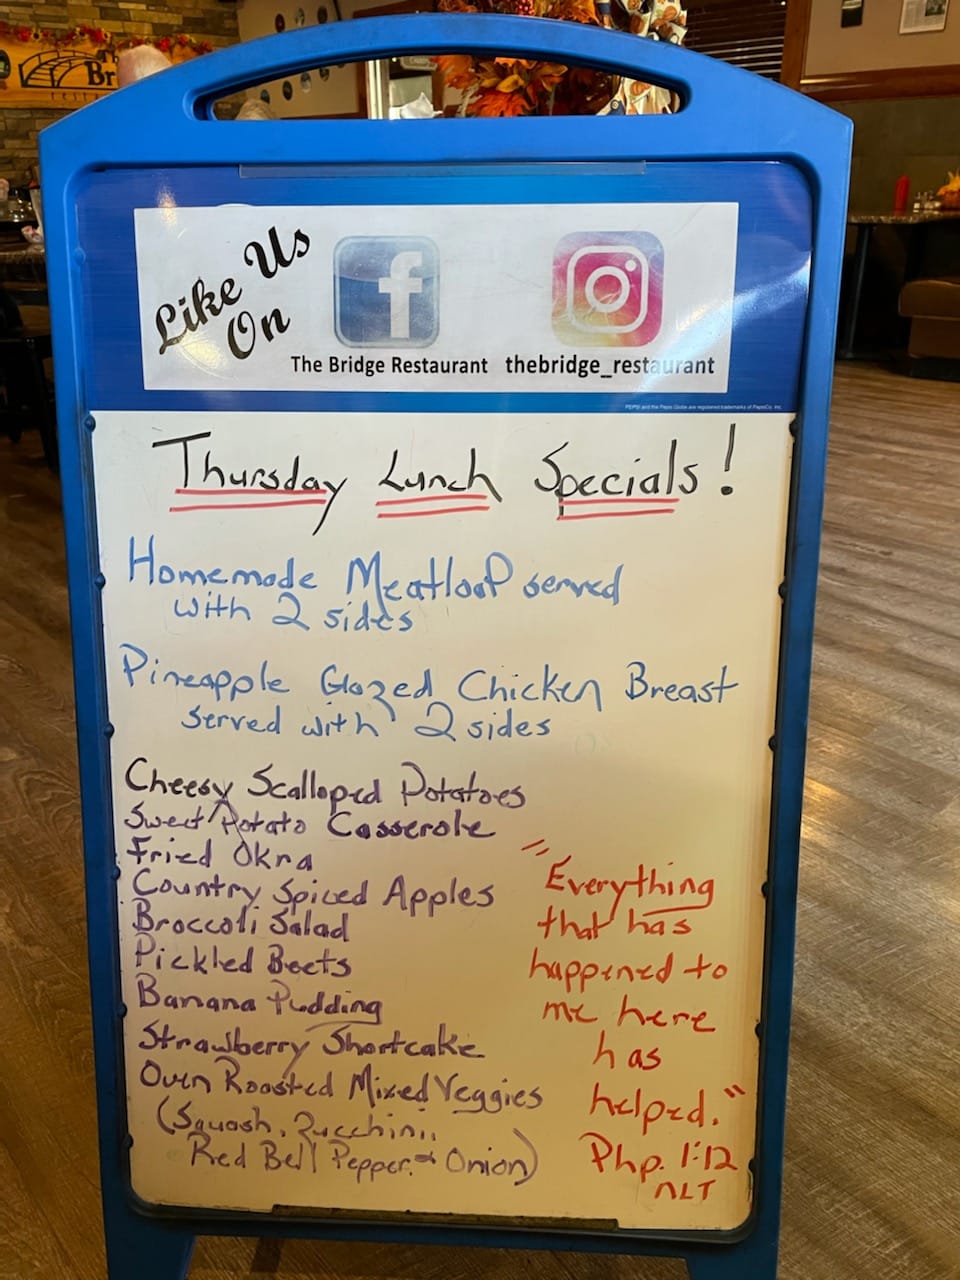 Th
Br
Like Us
On
f
The Bridge Restaurant thebridge_restaurant
PEPSI and the Pepsi Globe are registered trademarks of PepsiCo, Inc.
Thursday Lunch Specials!
Homemade Meatloaf served
with 2 sides
Pineapple Glazed Chicken Breast
served with 2 sides
Cheesy Scalloped Potatoes
Sweet Potato Casserole
Fried Okra
Country Spiced Apples
Broccoli Salad
Pickled Beets
Banana Pudding
Strawberry Shortcake
Oven Roasted Mixed Veggies
(Squash, Zucchini,
Red Bell Pepper, & Onion)
"Everything
that has
happened to
me here
has
helped."
Php. 1:12
NLT